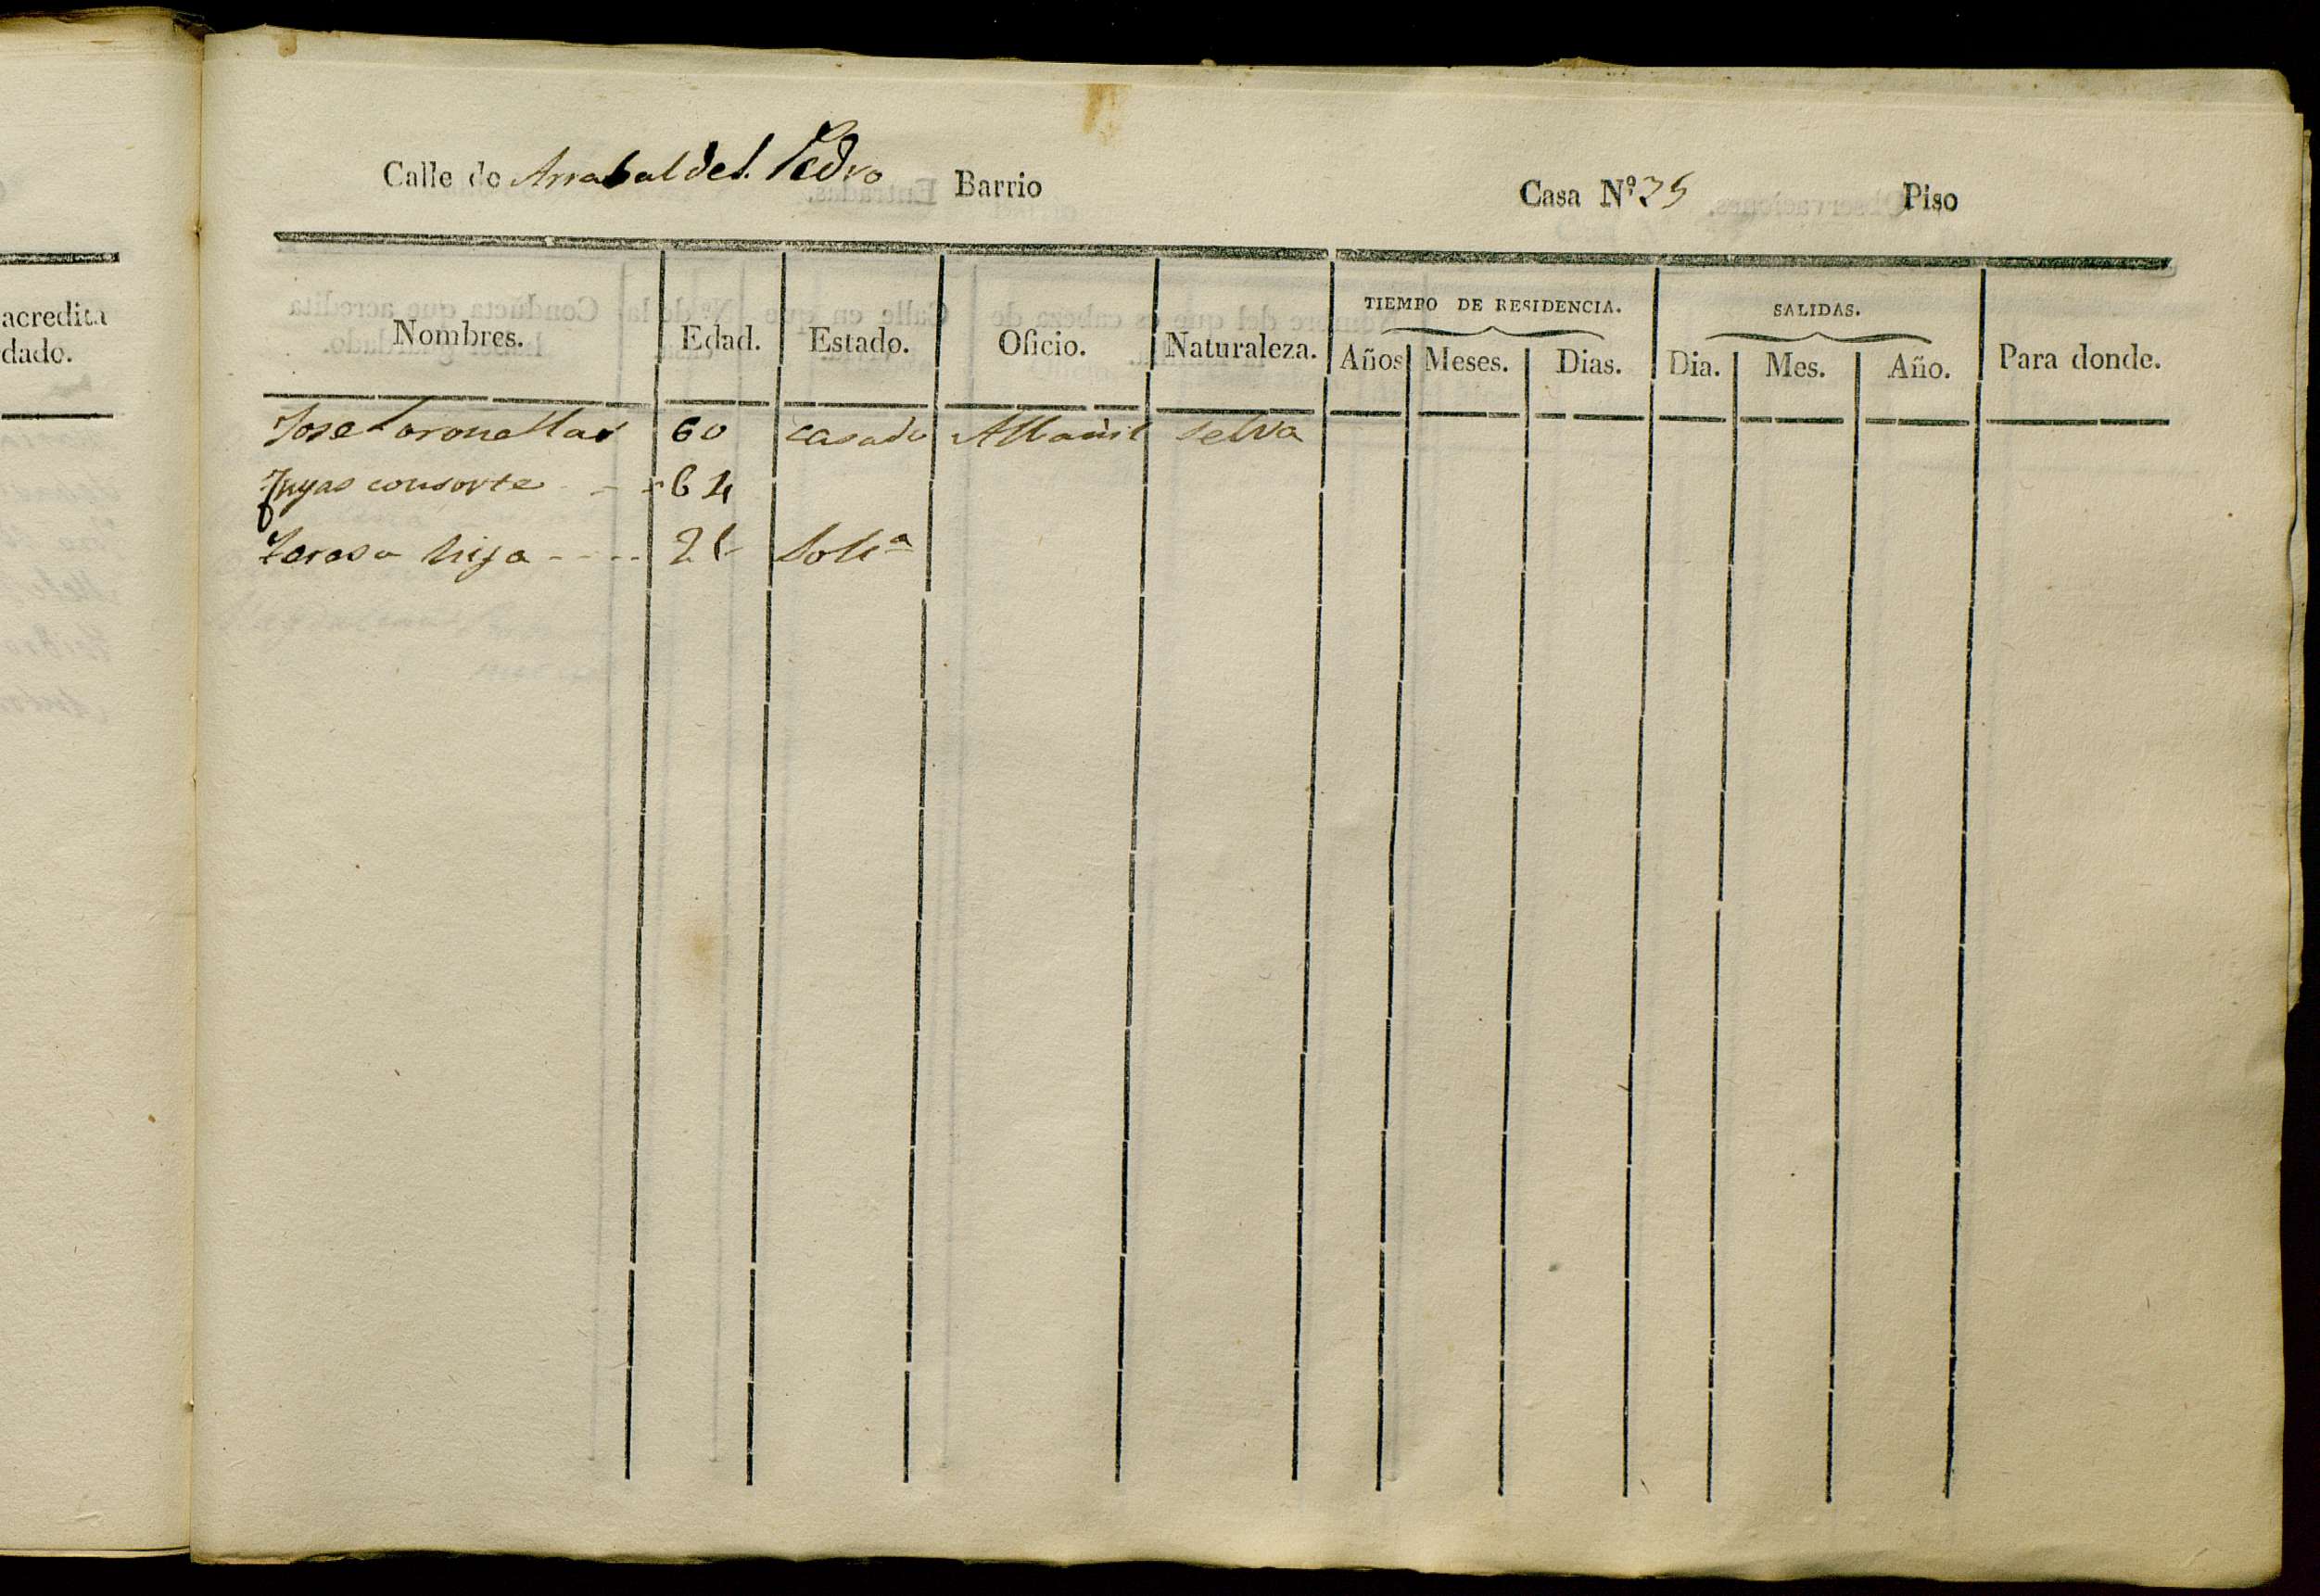 Calle de Arrabal de S. Pedro Barrio Casa Nº 25 Piso
acredita
dado.
Nombres. Edad. Estado. Oficio. Naturaleza. TIEMPO DE RESIDENCIA. Años Meses. Dias. SALIDAS. Dia. Mes. Año. Para donde.
Jose 60 casado Albañil Selva
consorte 64
Teresa hija 21 Solª